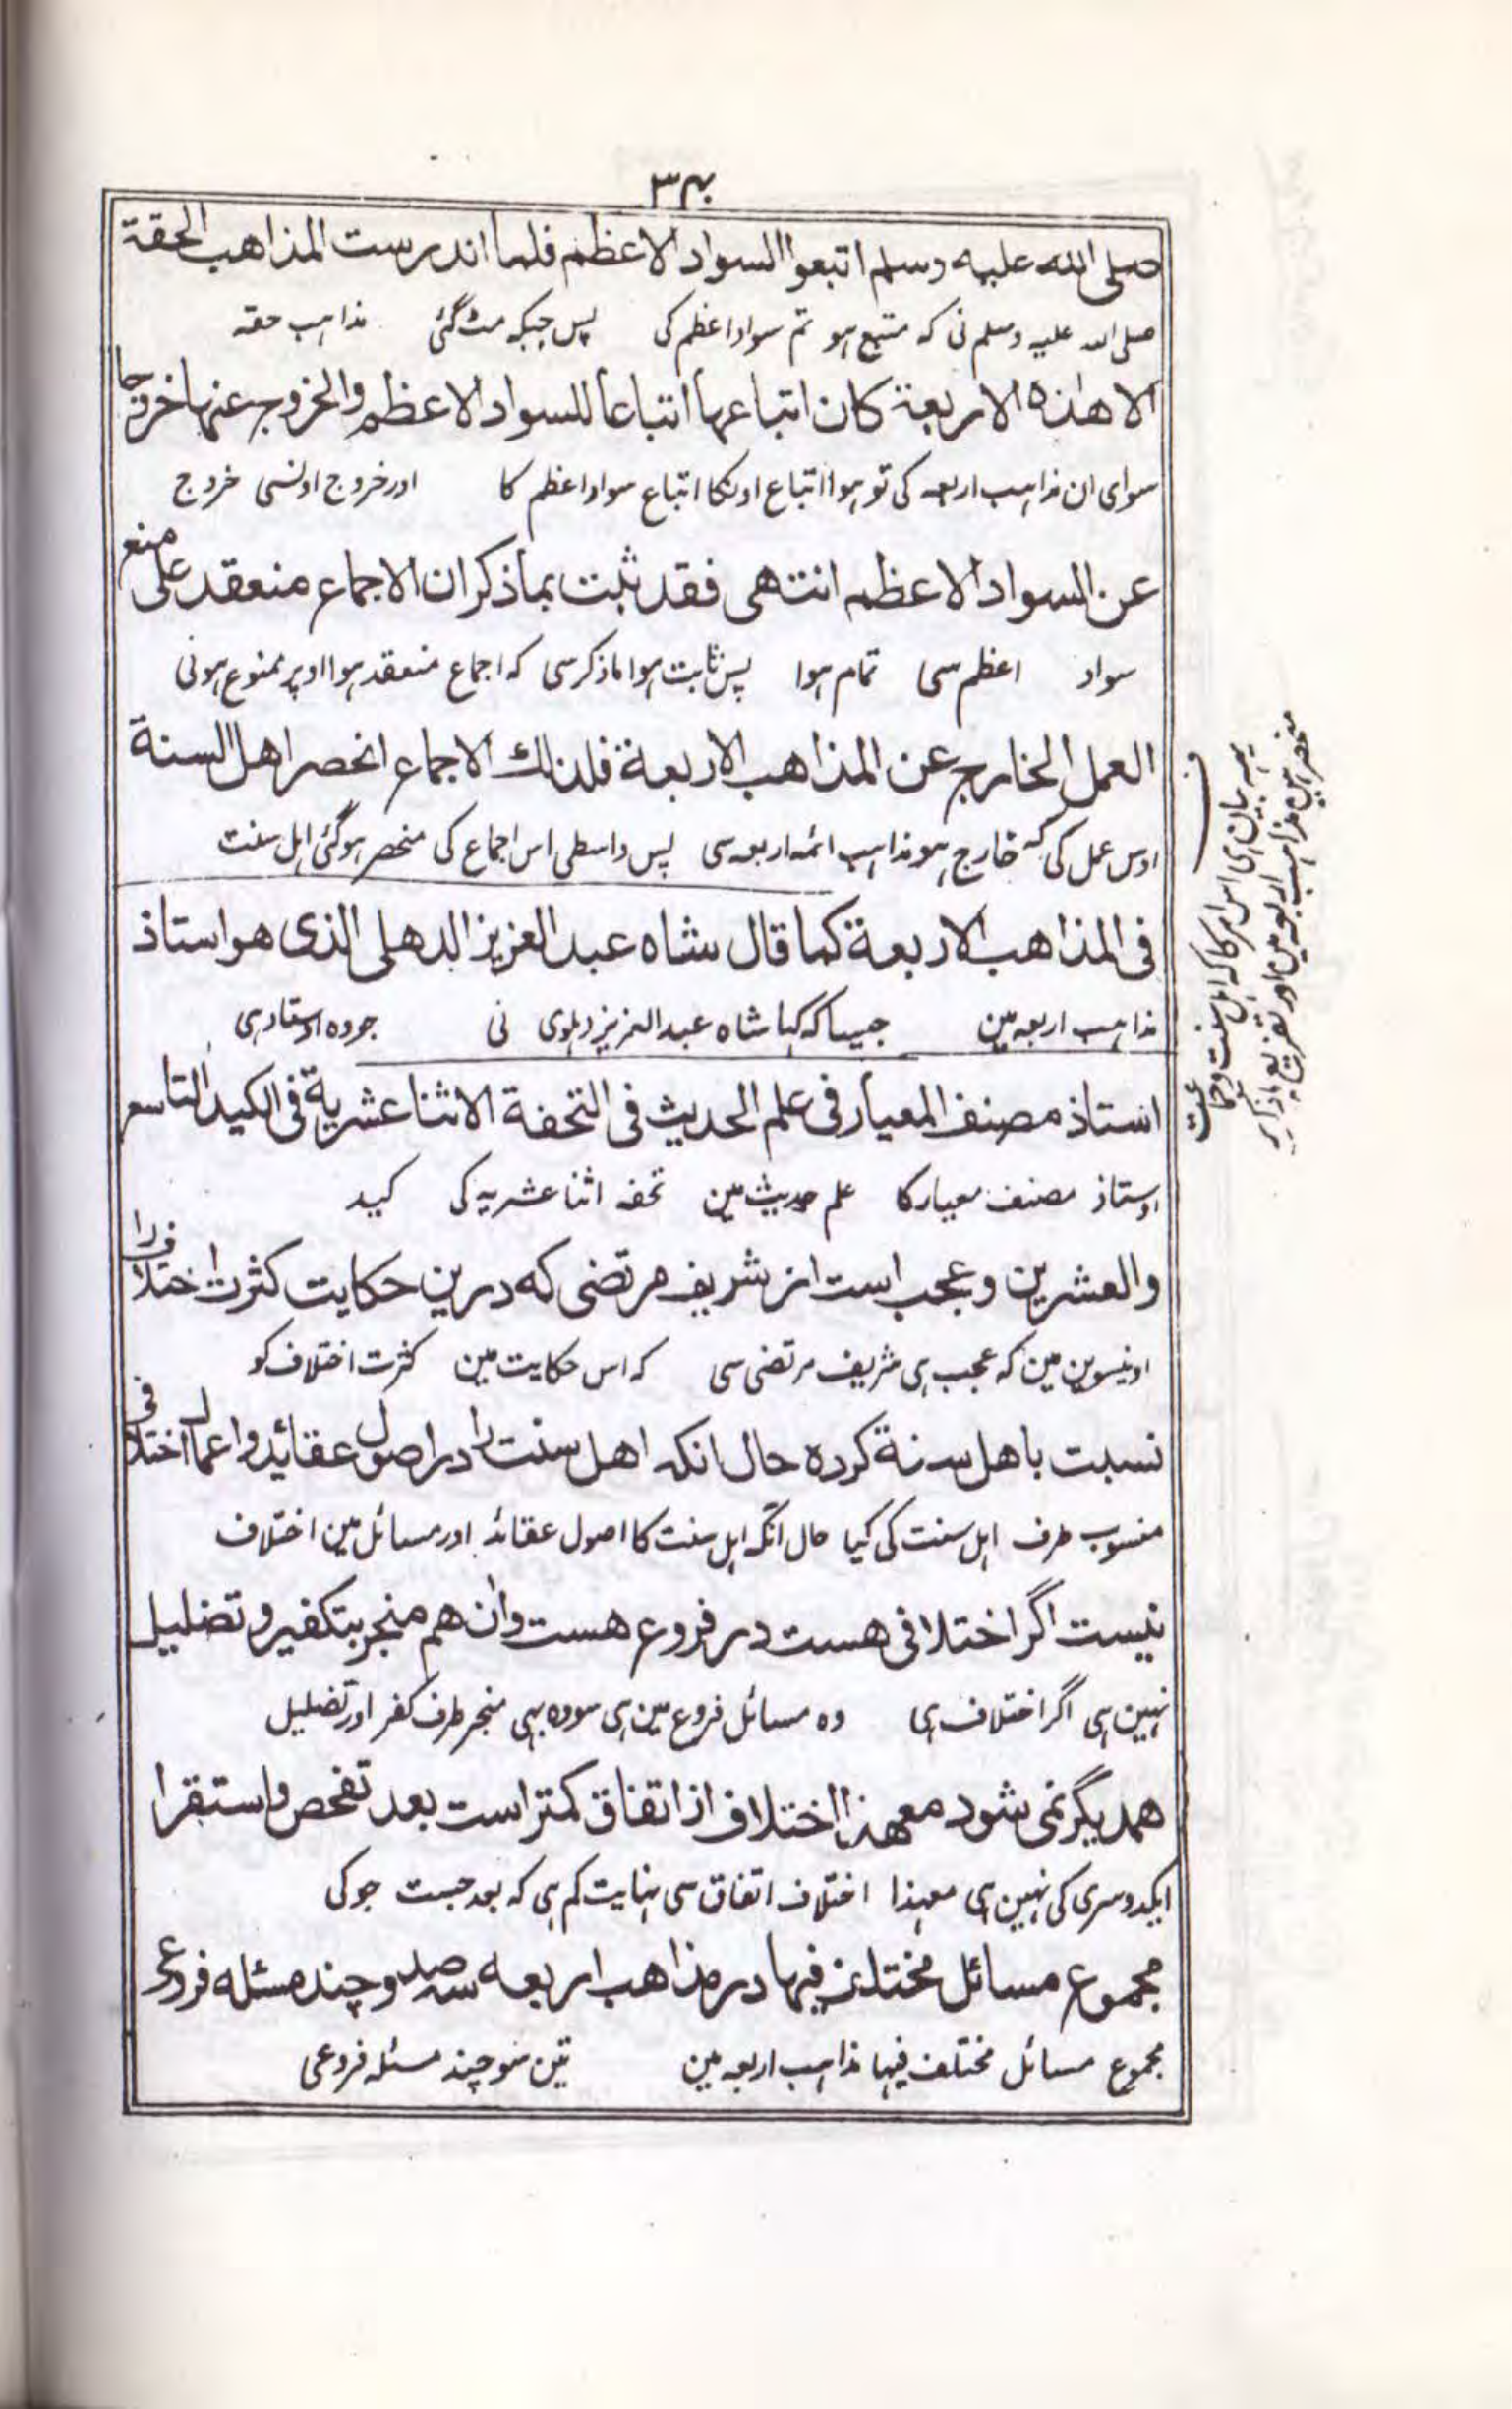 ۳۴
صلى الله عليه وسلم اتبعوا السواد الاعظم فلما اندرست المذاهب الحقة
صلی الله علیہ وسلم نی کہ متبع ہو تم سواد اعظم کی پس جبکہ مٹ گئی مذاہب حقہ
الا هذه الاربعة كان اتباعها اتباعا للسواد الاعظم والخروج عنها خروجا
سوای ان مذاہب اربعہ کی تو ہوا اتباع اونکا اتباع سواد اعظم کا اور خروج اونسی خروج
عن السواد الاعظم انتهى فقد ثبت بما ذكر ان الاجماع منعقد على منع
سواد اعظم سی تمام ہوا پس ثابت ہوا ماذکر سی کہ اجماع منعقد ہوا اوپر ممنوع ہونی
العمل الخارج عن المذاهب الاربعة فلذلك الاجماع انحصر اهل السنة
اوس عمل کی کہ خارج ہو مذاہب ائمہ اربعہ سی پس واسطی اس اجماع کی منحصر ہوگئی اہل سنت
فى المذاهب الاربعة كما قال شاه عبد العزيز الدهلى الذى هو استاذ
مذاہب اربعہ مین جیسا کہ کہا شاہ عبدالعزیز دہلوی نی جو وہ اوستاد ہی
استاذ مصنف المعيار فى علم الحديث فى التحفة الاثنا عشرية فى الكيد التاسع
اوستاذ مصنف معیار کا علم حدیث مین تحفہ اثنا عشریہ کی کید
والعشرين وعجب است از شریف مرتضی که درین حکایت کثرت اختلاف را
اونیسوین مین کہ عجب ہی شریف مرتضی سی کہ اس حکایت مین کثرت اختلاف کو
نسبت باهل سنة کرده حال انکه اهل سنت را در اصول عقائد و اعمال اختلافی
منسوب طرف اہل سنت کی کیا حال آنکہ اہل سنت کا اصول عقائد اور مسائل مین اختلاف
نیست اگر اختلافی هست در فروع هست وان هم منجر بتکفیر و تضلیل
نہین ہی اگر اختلاف ہی وہ مسائل فروع مین ہی سو وہ بہی منجر طرف کفر اور تضلیل
همدیگر نمی شود معهذا اختلاف از اتفاق کمتر است بعد تفحص و استقرا
ایکدوسری کی نہین ہی معہذا اختلاف اتفاق سی نہایت کم ہی کہ بعد جست جو کی
مجموع مسائل مختلف فیها در مذاهب اربعه سه صد و چند مسئله فروعی
مجموع مسائل مختلف فیہا مذاہب اربعہ مین تین سو چند مسئلہ فروعی
یہہ بیان ہی اس امر کا کہ اہل سنت وجماعت
منحصر ہین مذاہب اربعہ مین اور تفریع ماذکر پر